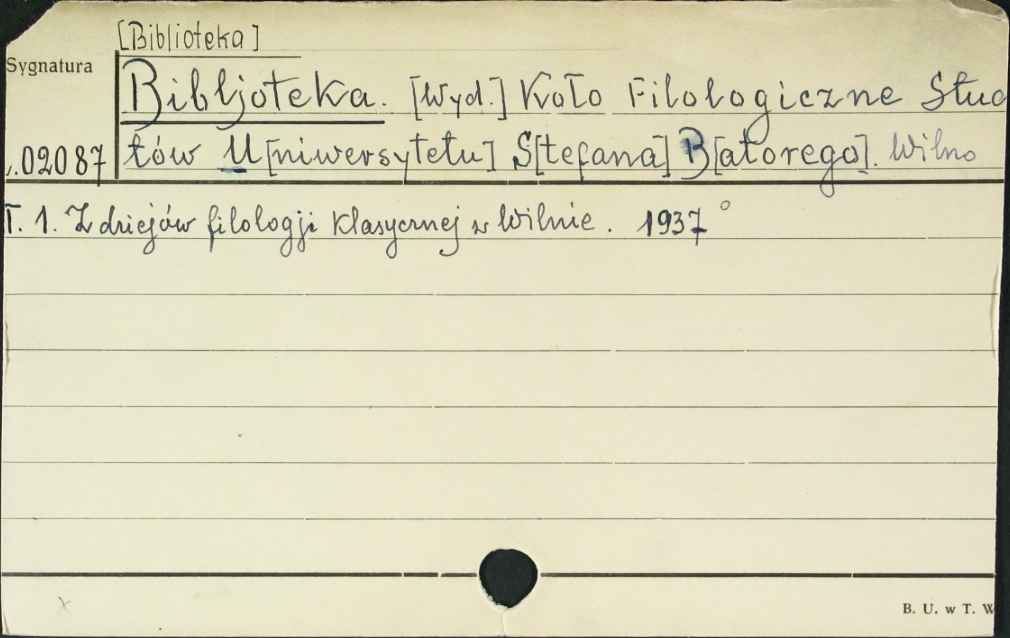 [Biblioteka]
Sygnatura
Bibljoteka. [Wyd.] Koło Filologiczne Stud
.02087
tów U[niwersytetu] S[tefana] B[atorego]. Wilno
T. 1. Z dziejów filologji klasycznej w Wilnie. 1937°
B. U. w T. W